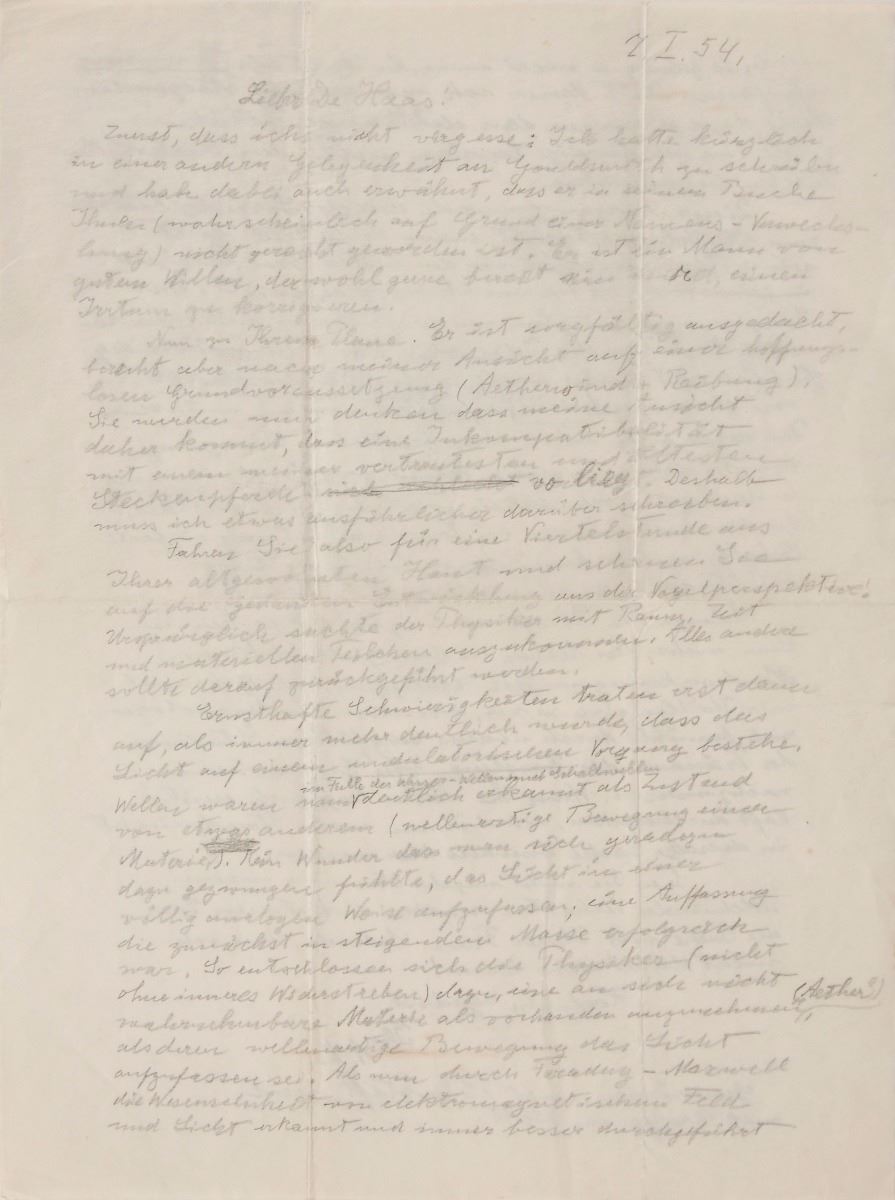 7 I. 54.
Lieber De Haas!
Zuerst, dass ichs nicht vergesse: Ich hatte kürzlich
in einer andern Gelegenheit an Goudsmith zu schreiben
und habe dabei auch erwähnt, dass er in seinem Buche
Ihnen (wahrscheinlich auf Grund einer Namens-Verwechs-
lung) nicht gerecht geworden ist. Er ist ein Mann von
gutem Willen, der wohl gerne bereit sein wird, einen
Irrtum zu korrigieren.
Nun zu Ihrem Plane. Er ist sorgfältig ausgedacht,
beruht aber nach meiner Ansicht auf einer hoffnungs-
losen Grundvoraussetzung (Aetherwind + Reibung).
Sie werden nun denken dass meine Ansicht
daher kommt, dass eine Inkompatibilität
mit einem meiner vertrautesten und ältesten
Steckenpferde vorliegt. Deshalb
muss ich etwas ausführlicher darüber schreiben.
Fahren Sie also für eine Viertelstunde aus
Ihrer altgewohnten Haut und schauen Sie
auf die gesamten Entwicklung aus der Vogelperspektive!
Ursprünglich suchte der Physiker mit Raum, Zeit
und materiellen Teilchen auszukommen. Alles andere
sollte darauf zurückgeführt werden.
Ernsthafte Schwierigkeiten traten erst dann
auf, als immer mehr deutlich wurde, dass das
Licht auf einem undulatorischen Vorgang bestehe.
im Falle der Wasser-Wellen und Schallwellen
Wellen waren deutlich erkannt als Zustand
von etwas anderem (wellenartige Bewegung einer
Materie). Kein Wunder dass man sich geradezu
dazu gezwungen fühlte, das Licht in einer
völlig analogen Weise aufzufassen; eine Auffassung
die zunächst in steigendem Masse erfolgreich
war. So entschlossen sich die Physiker (nicht
ohne inneres Widerstreben) dazu, eine an sich nicht
wahrnehmbare Materie als vorhanden anzunehmen, (Aether)
als deren wellenartige Bewegung das Licht
aufzufassen sei. Als nun durch Faraday-Maxwell
die Wesenseinheit von elektromagnetischem Feld
und Licht erkannt und immer besser durchgeführt